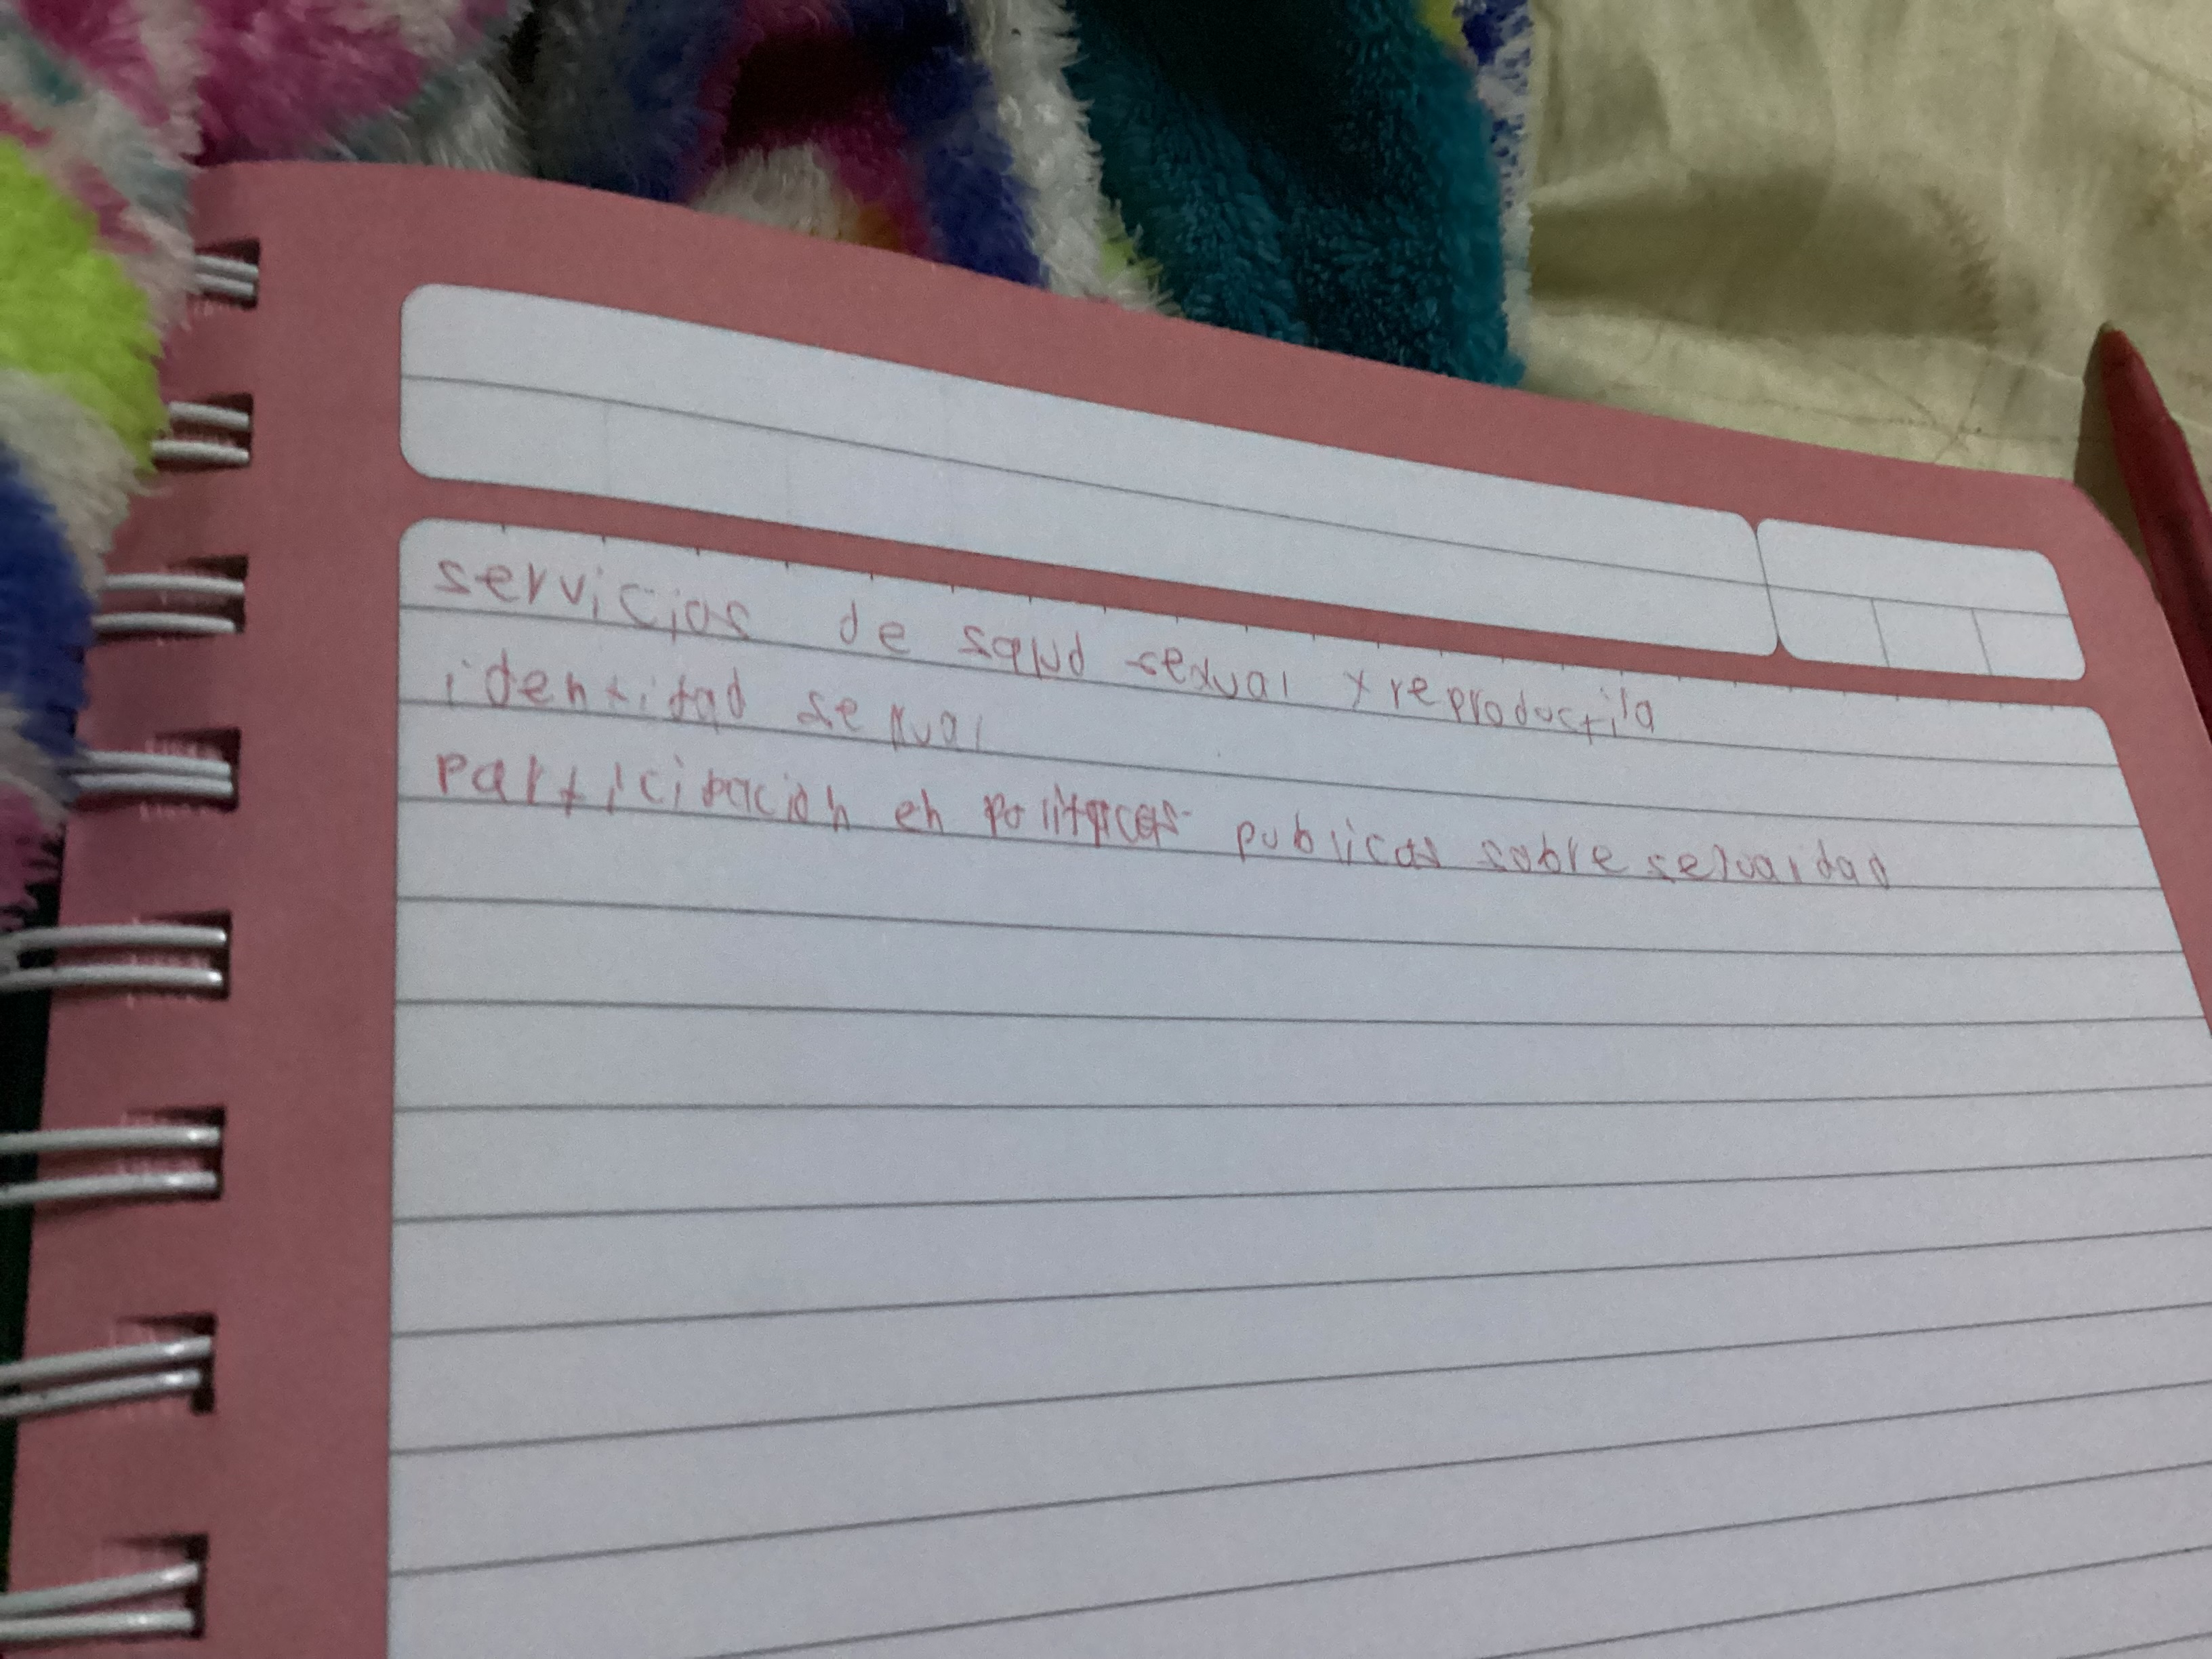 servicios de salud sexual y reproductiva
identidad sexual
participacion en politicas publicas sobre sexualidad